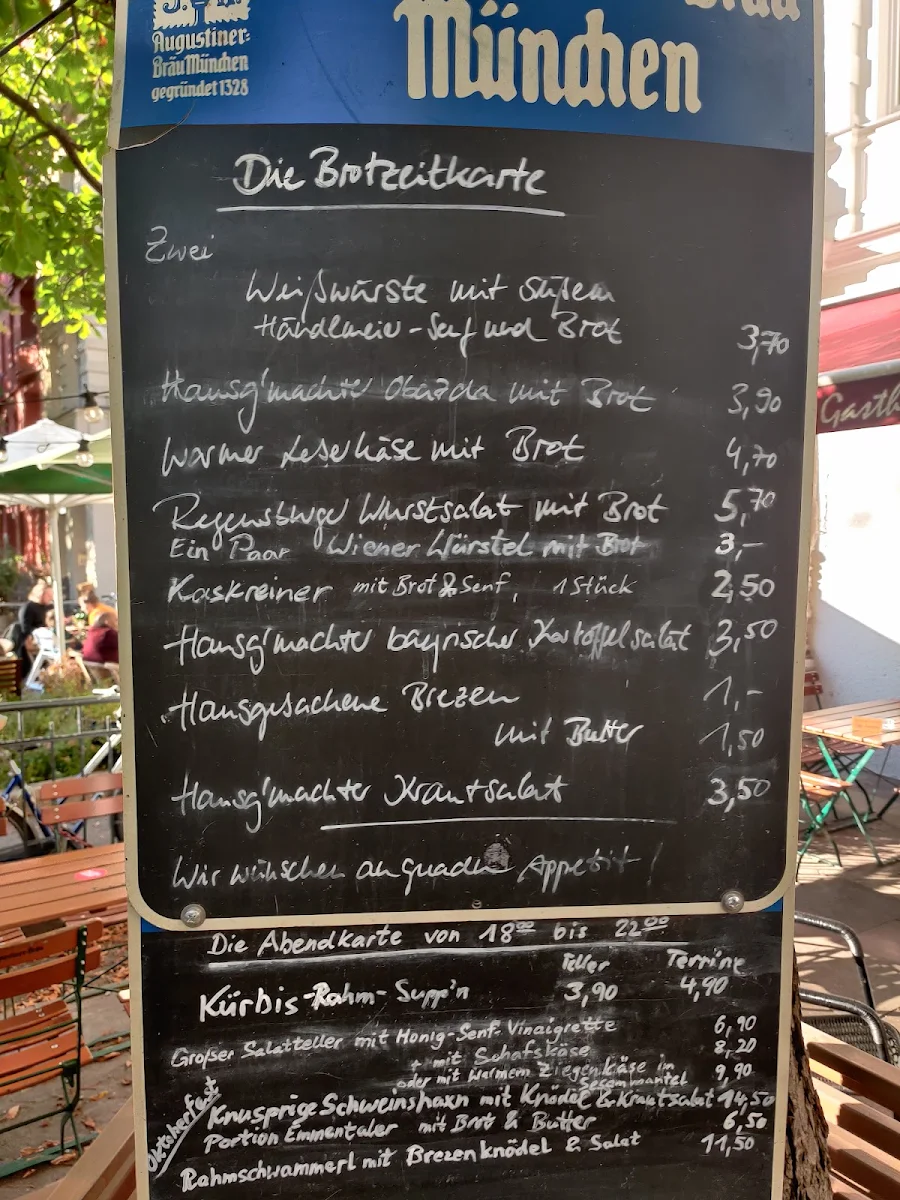 Bräu
München
Augustiner-
Bräu München
gegründet 1328
Die Brotzeitkarte
Zwei
Weißwürste mit süßem
Händlmeier-Senf und Brot 3,70
Hausg'machter Obazda mit Brot 3,90
Warmer Leberkäse mit Brot 4,70
Regensburger Wurstsalat mit Brot 5,70
Ein Paar Wiener Würstel mit Brot 3,-
Kaskreiner mit Brot & Senf, 1 Stück 2,50
Hausg'machter bayrischer Kartoffelsalat 3,50
Hausgebachene Brezen 1,-
mit Butter 1,50
Hausg'machter Krautsalat 3,50
Wir wünschen an guadn Appetit!
Die Abendkarte von 18⁰⁰ bis 22⁰⁰
Teller Terrine
Kürbis-Rahm-Supp'n 3,90 4,90
Großer Salatteller mit Honig-Senf-Vinaigrette 6,90
+ mit Schafskäse 8,20
oder mit warmem Ziegenkäse im 9,90
Sesammantel
Oktoberfest
Knusprige Schweinshaxn mit Knödel & Krautsalat 14,50
Portion Emmentaler mit Brot & Butter 6,50
Rahmschwammerl mit Brezenknödel & Salat 11,50
Gasth